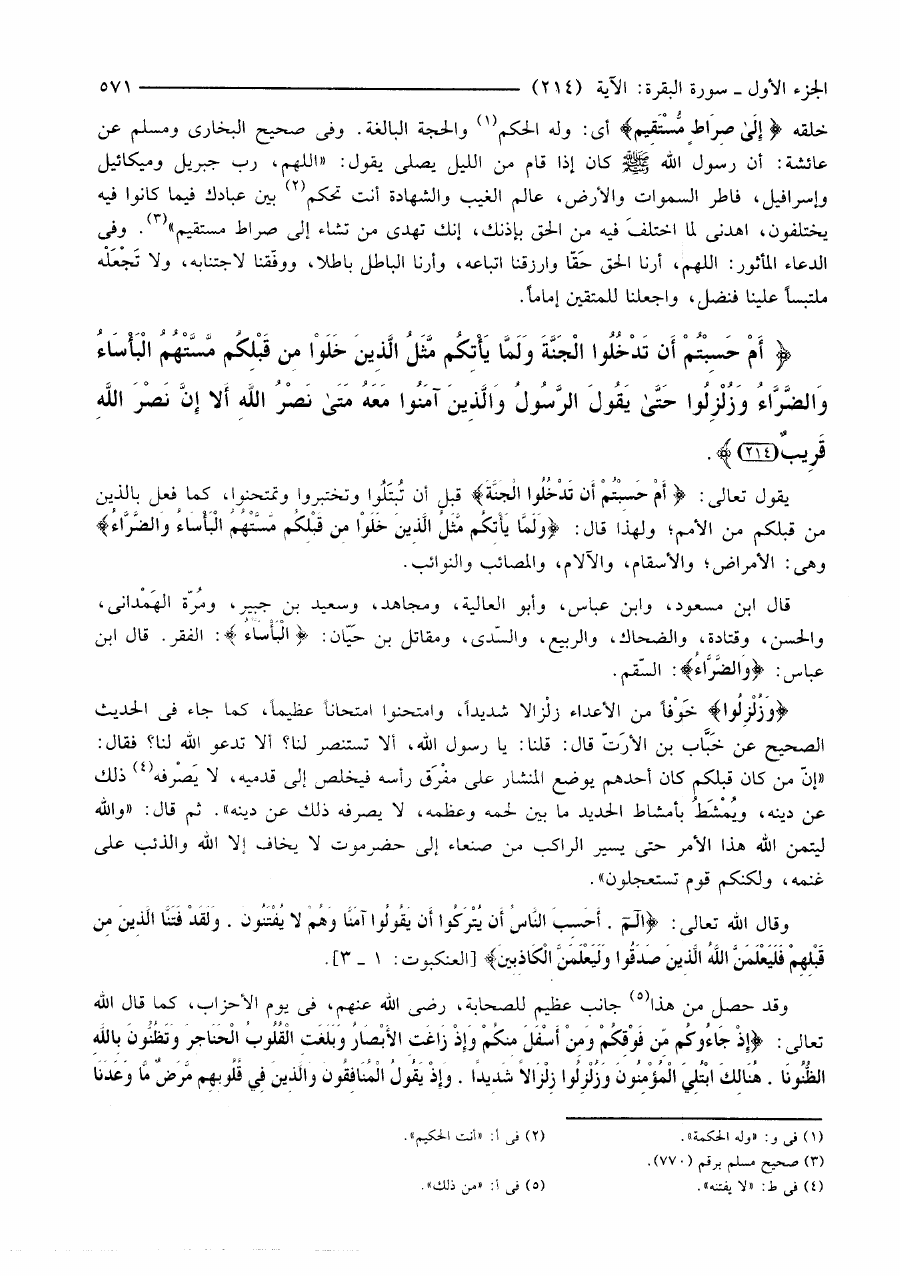 الجزء الأول ـ سورة البقرة: الآية (٢١٤) ٥٧١
خلقه ﴿ إِلَىٰ صِرَاطٍ مُّسْتَقِيمٍ﴾ أى: وله الحكم(١) والحجة البالغة. وفى صحيح البخارى ومسلم عن
عائشة: أن رسول الله ﷺ كان إذا قام من الليل يصلى يقول: «اللهم، رب جبريل وميكائيل
وإسرافيل، فاطر السموات والأرض، عالم الغيب والشهادة أنت تحكم(٢) بين عبادك فيما كانوا فيه
يختلفون، اهدنى لما اختلفَ فيه من الحق بإذنك، إنك تهدى من تشاء إلى صراط مستقيم»(٣). وفى
الدعاء المأثور: اللهم، أرنا الحق حَقّا وارزقنا اتباعه، وأرنا الباطل باطلا، ووفّقنا لاجتنابه، ولا تَجْعَلْه
ملتبساً علينا فنضل، واجعلنا للمتقين إماماً.
﴿ أَمْ حَسِبْتُمْ أَن تَدْخُلُوا الْجَنَّةَ وَلَمَّا يَأْتِكُم مَّثَلُ الَّذِينَ خَلَوْا مِن قَبْلِكُم مَّسَّتْهُمُ الْبَأْسَاءُ
وَالضَّرَّاءُ وَزُلْزِلُوا حَتَّىٰ يَقُولَ الرَّسُولُ وَالَّذِينَ آمَنُوا مَعَهُ مَتَىٰ نَصْرُ اللَّهِ أَلا إِنَّ نَصْرَ اللَّهِ
قَرِيبٌ (٢١٤)﴾.
يقول تعالى: ﴿ أَمْ حَسِبْتُمْ أَن تَدْخُلُوا الْجَنَّةَ﴾ قبل أن تُبتَلُوا وتختبروا وتمتحنوا، كما فعل بالذين
من قبلكم من الأمم؛ ولهذا قال: ﴿وَلَمَّا يَأْتِكُم مَّثَلُ الَّذِينَ خَلَوْا مِن قَبْلِكُم مَّسَّتْهُمُ الْبَأْسَاءُ وَالضَّرَّاءُ﴾
وهى: الأمراض؛ والأسقام، والآلام، والمصائب والنوائب.
قال ابن مسعود، وابن عباس، وأبو العالية، ومجاهد، وسعيد بن جبير، ومُرّة الهَمْدانى،
والحسن، وقتادة، والضحاك، والربيع، والسّدى، ومقاتل بن حَيّان: ﴿ الْبَأْسَاءُ ﴾: الفقر. قال ابن
عباس: ﴿وَالضَّرَّاءُ﴾: السّقم.
﴿وَزُلْزِلُوا﴾ خَوْفاً من الأعداء زلْزالا شديداً، وامتحنوا امتحاناً عظيماً، كما جاء فى الحديث
الصحيح عن خَبَّاب بن الأرَتّ قال: قلنا: يا رسول الله، ألا تستنصر لنا؟ ألا تدعو الله لنا؟ فقال:
«إنّ من كان قبلكم كان أحدهم يوضع المنشار على مفْرَق رأسه فيخلص إلى قدميه، لا يَصْرفه(٤) ذلك
عن دينه، ويُمْشَطُ بأمشاط الحديد ما بين لحمه وعظمه، لا يصرفه ذلك عن دينه». ثم قال: «والله
ليتمن الله هذا الأمر حتى يسير الراكب من صنعاء إلى حضرموت لا يخاف إلا الله والذئب على
غنمه، ولكنكم قوم تستعجلون».
وقال الله تعالى: ﴿الٓمٓ . أَحَسِبَ النَّاسُ أَن يُتْرَكُوا أَن يَقُولُوا آمَنَّا وَهُمْ لا يُفْتَنُونَ . وَلَقَدْ فَتَنَّا الَّذِينَ مِن
قَبْلِهِمْ فَلَيَعْلَمَنَّ اللَّهُ الَّذِينَ صَدَقُوا وَلَيَعْلَمَنَّ الْكَاذِبِينَ﴾ [العنكبوت: ١ ـ ٣].
وقد حصل من هذا(٥) جانب عظيم للصحابة، رضى الله عنهم، فى يوم الأحزاب، كما قال الله
تعالى: ﴿إِذْ جَاءُوكُم مِّن فَوْقِكُمْ وَمِنْ أَسْفَلَ مِنكُمْ وَإِذْ زَاغَتِ الأَبْصَارُ وَبَلَغَتِ الْقُلُوبُ الْحَنَاجِرَ وَتَظُنُّونَ بِاللَّهِ
الظُّنُونَا . هُنَالِكَ ابْتُلِيَ الْمُؤْمِنُونَ وَزُلْزِلُوا زِلْزَالاً شَدِيدًا . وَإِذْ يَقُولُ الْمُنَافِقُونَ وَالَّذِينَ فِي قُلُوبِهِم مَّرَضٌ مَّا وَعَدَنَا
(١) فى و: «وله الحكمة». (٢) فى أ: «أنت الحكيم».
(٣) صحيح مسلم برقم (٧٧٠).
(٤) فى ط: «لا يفتنه». (٥) فى أ: «من ذلك».